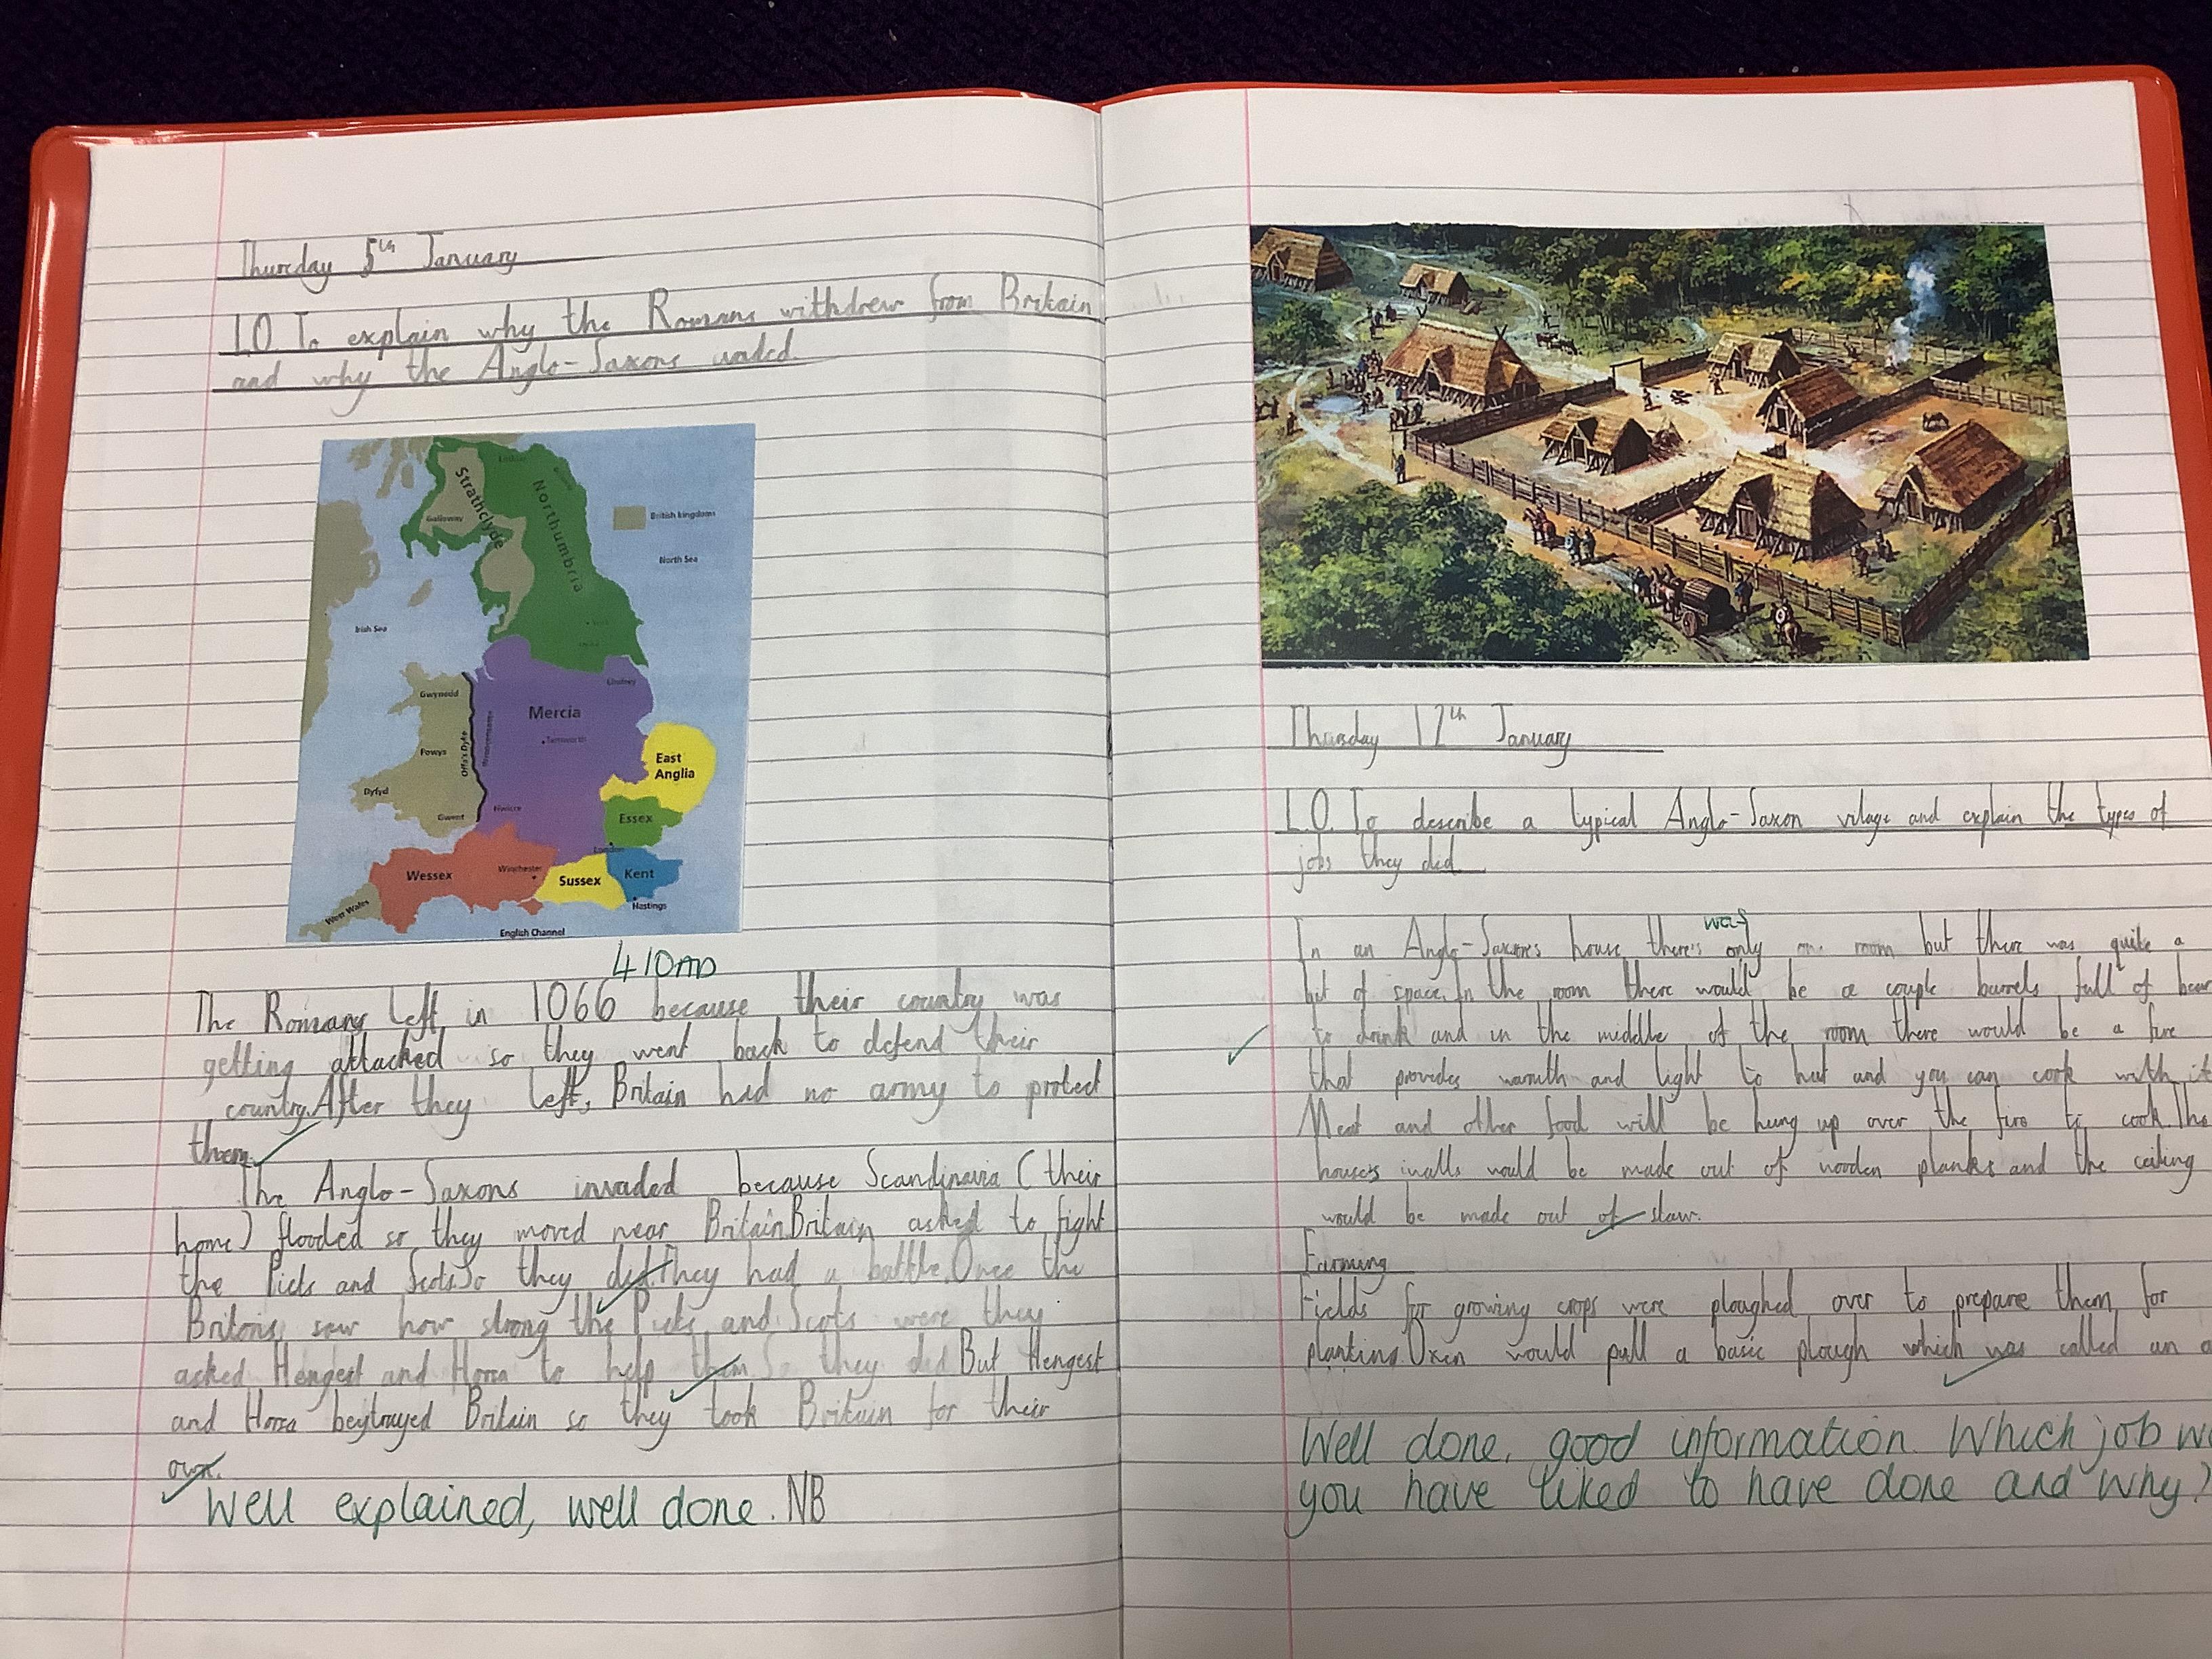 Thursday 5th January
L.O. To explain why the Romans withdrew from Britain
and why the Anglo-Saxons invaded.
Strathclyde
Northumbria
Galloway
British kingdoms
North Sea
Irish Sea
Lindsey
Gwynedd
Mercia
Tamworth
Offa's Dyke
Powys
East
Anglia
Dyfyd
Gwent
Hwicce
Essex
London
Wessex
Winchester
Sussex
Kent
Hastings
West Wales
English Channel
410AD
The Romans left in 1066 because their country was
getting attacked so they went back to defend their
country. After they left, Britain had no army to protect
them.
The Anglo-Saxons invaded because Scandinavia (their
home) flooded so they moved near Britain. Britain asked to fight
the Picts and Scots. So they did. They had a battle. Once the
Britons saw how strong the Picts and Scots were they
asked Hengest and Horsa to help them. So they did. But Hengest
and Horsa beytrayed Britain so they took Britain for their
own.
Well explained, well done. NB
Thursday 12th January
L.O. To describe a typical Anglo-Saxon vilage and explain the types of
jobs they did
was
In an Anglo-Saxons house there's only one room but there was quite a
bit of space. In the room there would be a couple barrels full of bear
to drink and in the middle of the room there would be a fire
that provides warmth and light to hut and you can cook with it
Meat and other food will be hung up over the fire to cook. The
houses walls would be made out of wooden planks and the ceiling
would be made out of staw.
Farming
Fields for growing crops were ploughed over to prepare them for
planting. Oxen would pull a basic plough which was called an a
Well done, good information. Which job w
you have liked to have done and why?